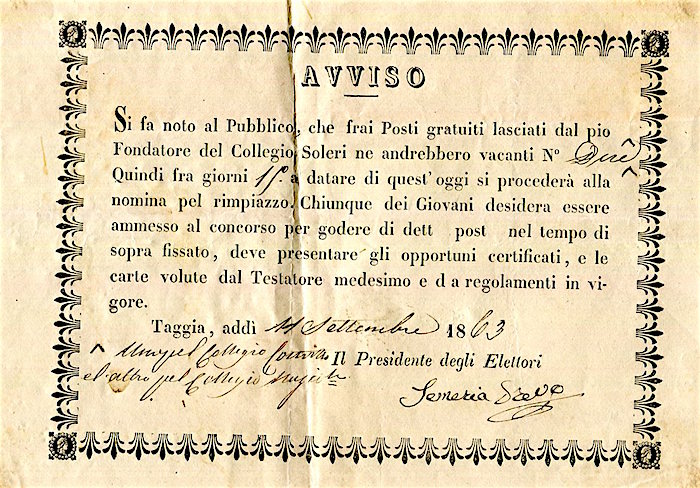 AVVISO
Si fa noto al Pubblico, che frai Posti gratuiti lasciati dal pio
Fondatore del Collegio Soleri ne andrebbero vacanti N° Due ^
Quindi fra giorni 15. a datare di quest'oggi si procederà alla
nomina pel rimpiazzo. Chiunque dei Giovani desidera essere
ammesso al concorso per godere di dett post nel tempo di
sopra fissato, deve presentare gli opportuni certificati, e le
carte volute dal Testatore medesimo e da regolamenti in vi-
gore.
Taggia, addì 11 Settembre 1863
^ Uno pel Collegio
Il Presidente degli Elettori
e l'altro pel Collegio
Semeria